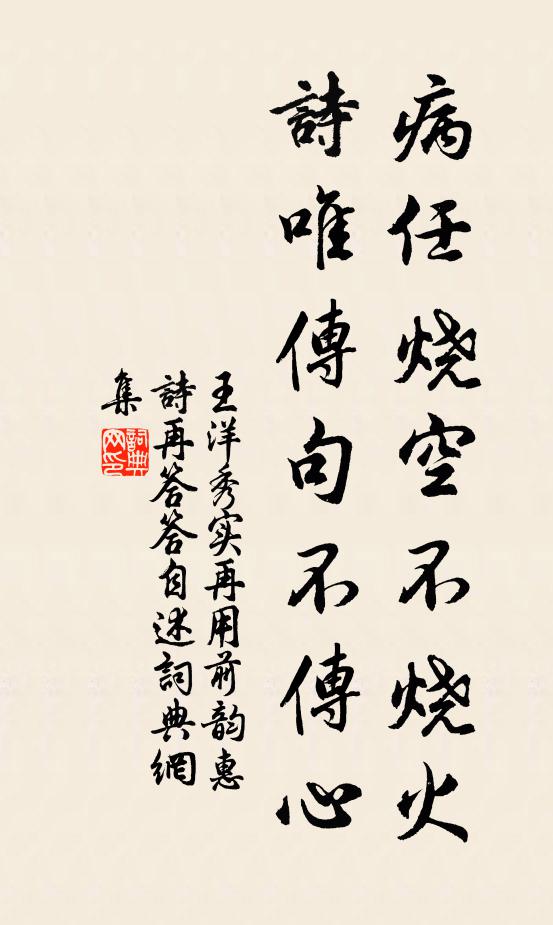 病任烧空不烧火
詩唯傳句不傳心
王洋秀实再用前韵惠
詩再答答自述詞典網
集
詞典网印